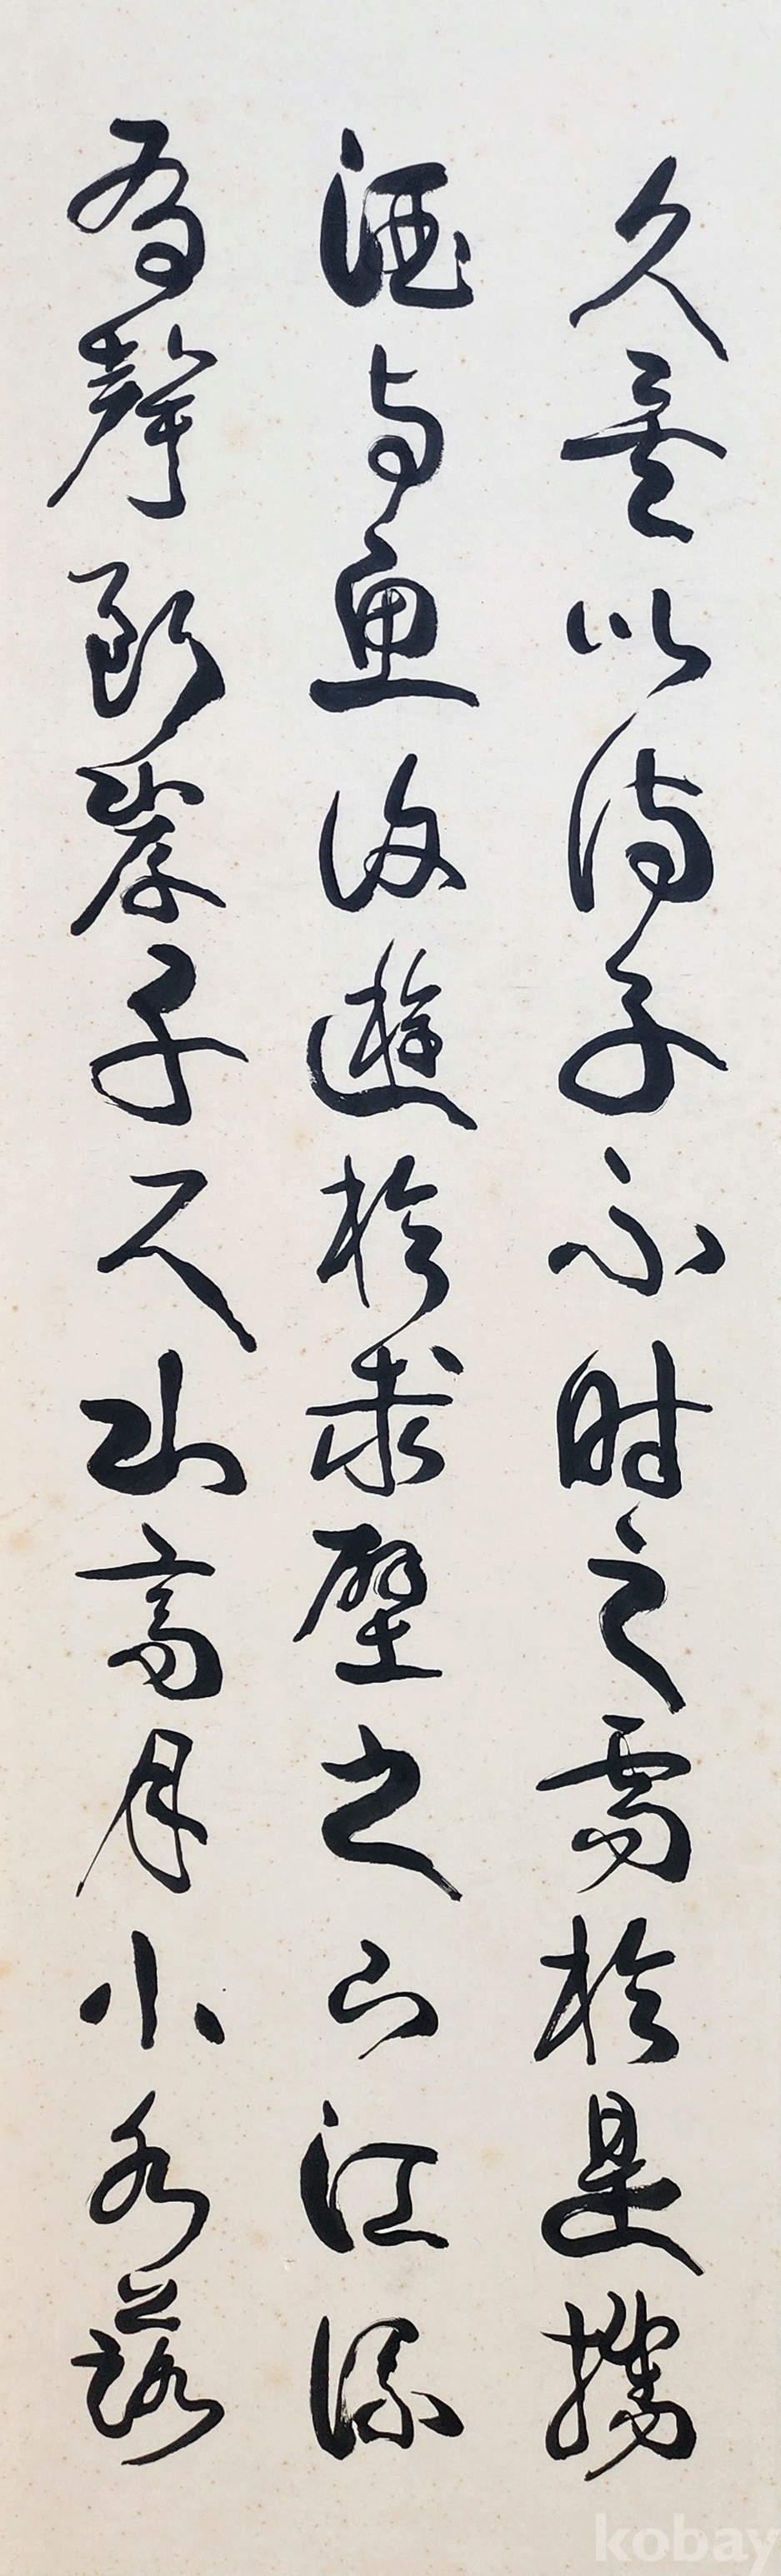 久矣以待子不時之需於是攜
酒與魚復遊於赤壁之下江流
有聲斷岸千尺山高月小水落
kobay